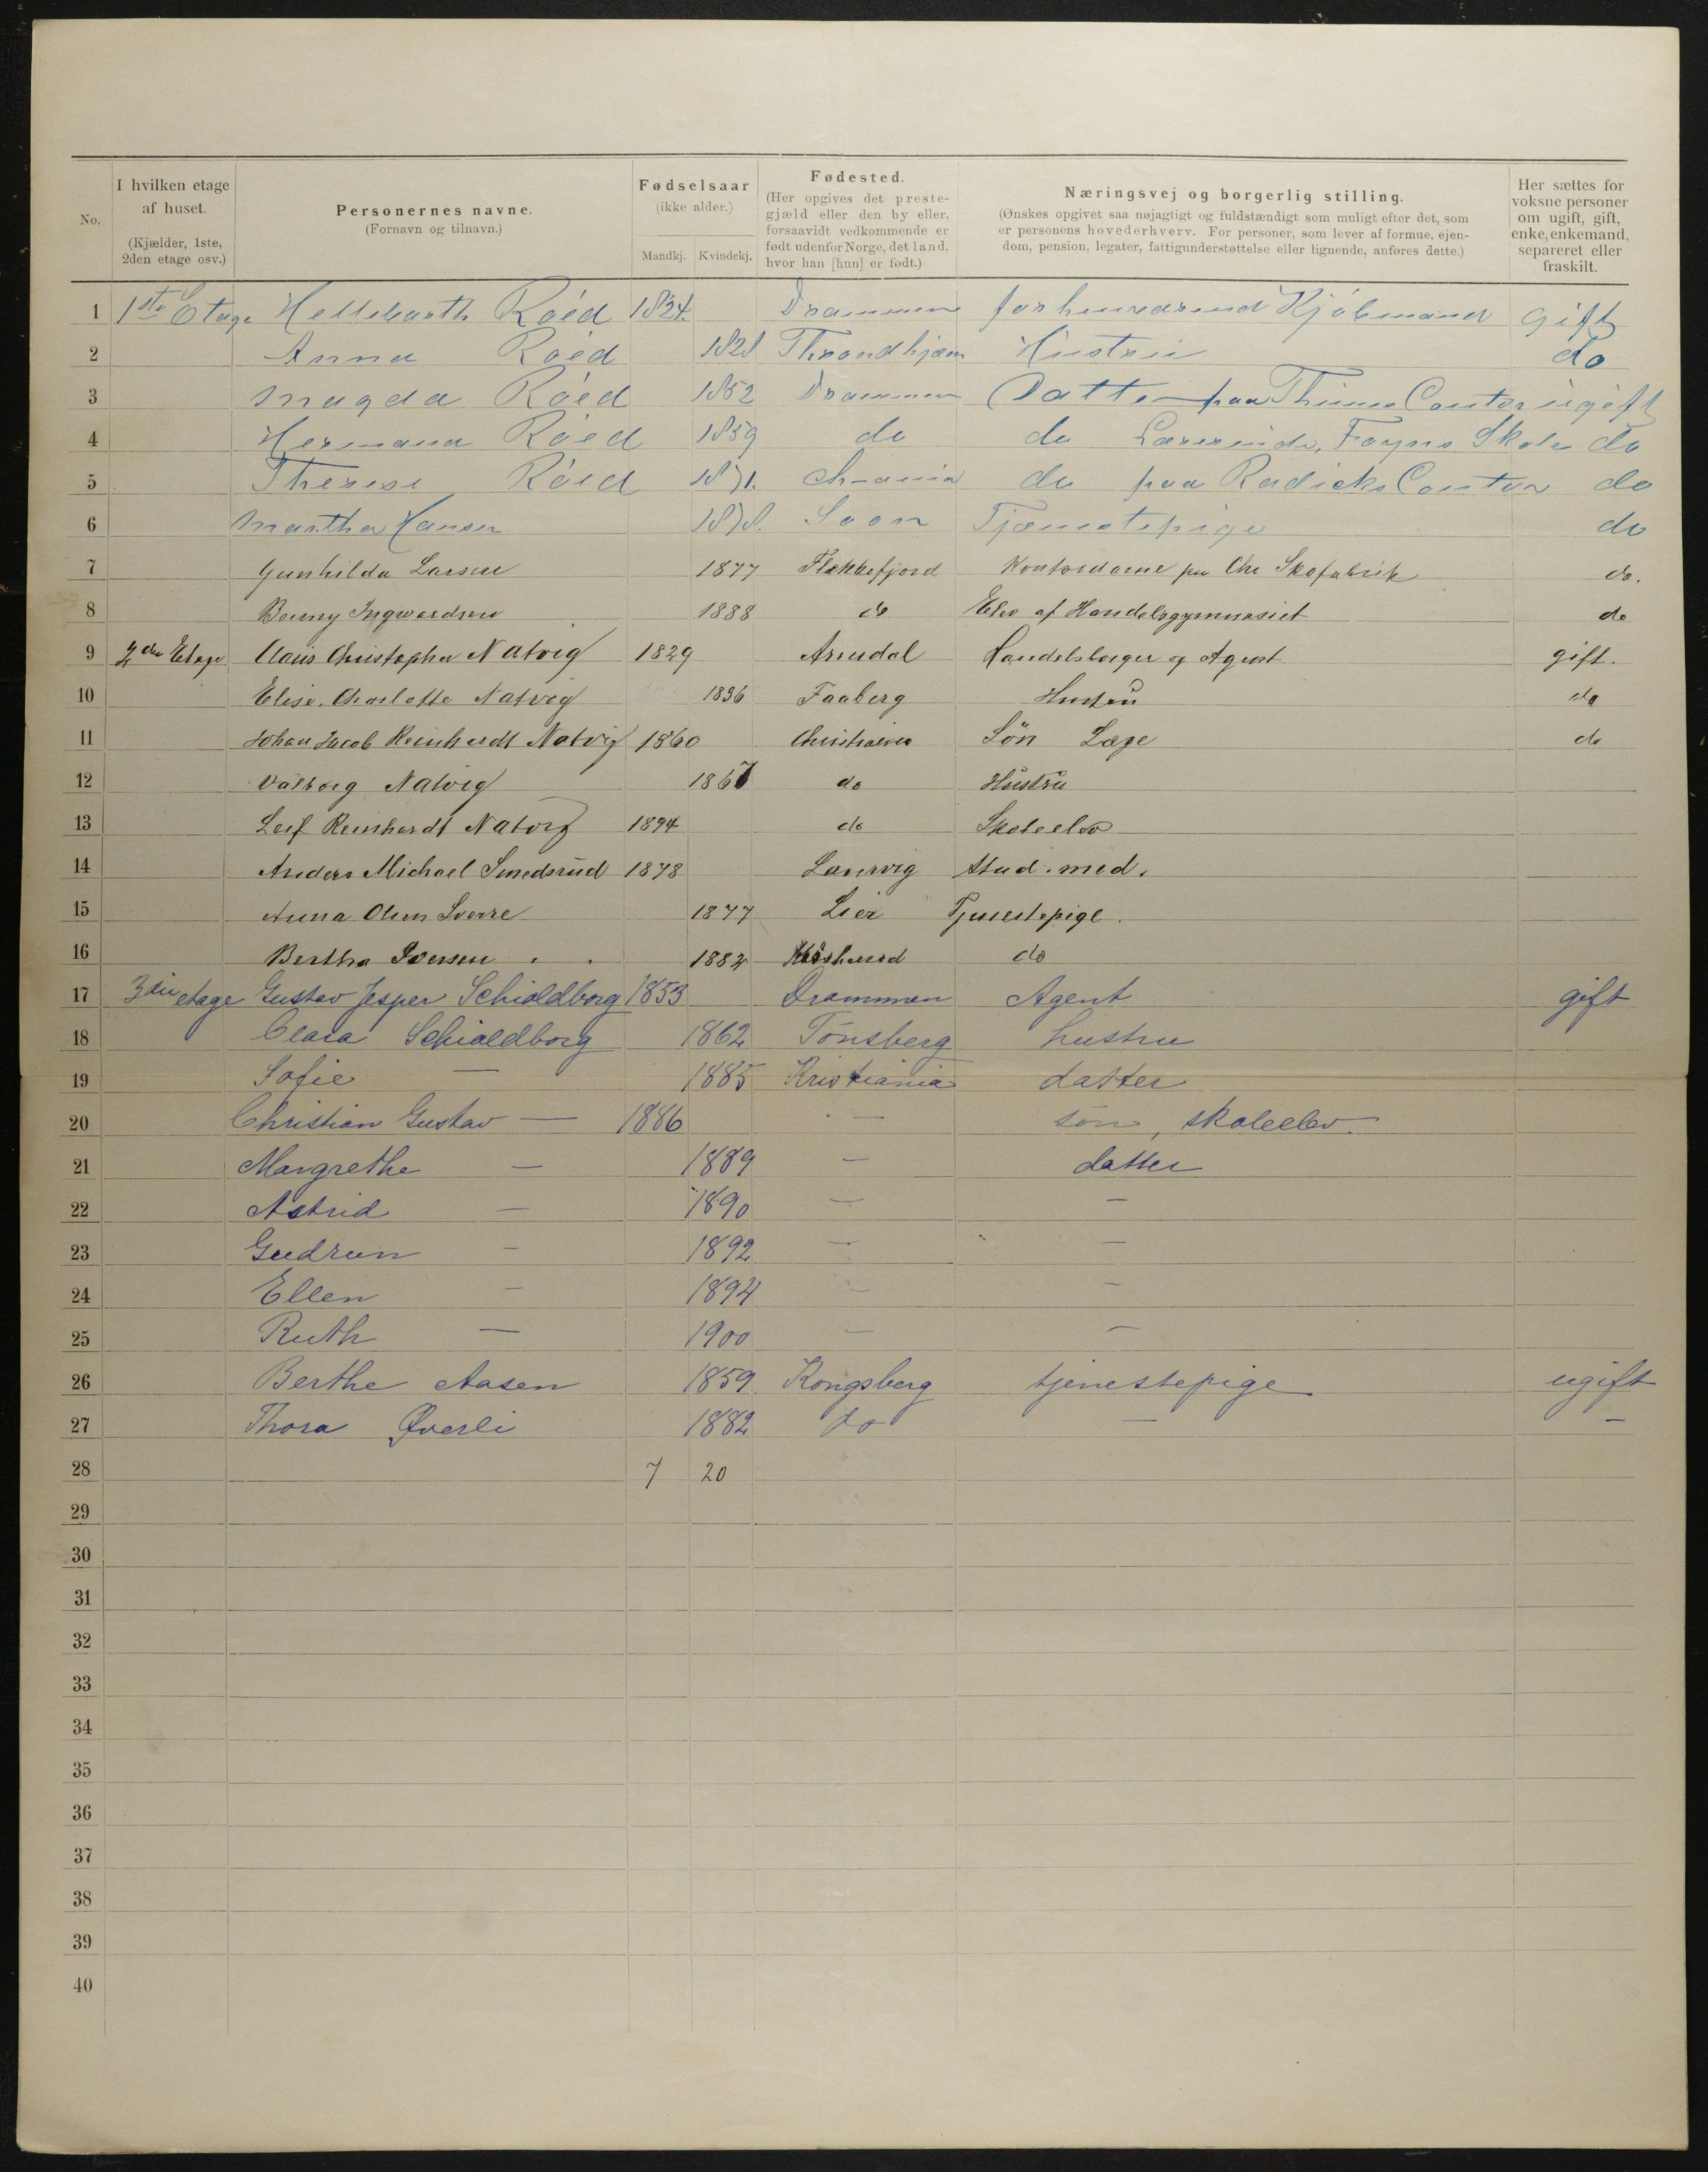 No. | I hvilken etage af huset. (Kjælder, 1ste, 2den etage osv.) | Personernes navne. (Fornavn og tilnavn.) | Fødselsaar (ikke alder.) Mandkj. Kvindekj. | Fødested. (Her opgives det prestegjæld eller den by eller, forsaavidt vedkommende er født udenfor Norge, det land, hvor han [hun] er født.) | Næringsvej og borgerlig stilling. (Ønskes opgivet saa nøjagtigt og fuldstændigt som muligt efter det, som er personens hovederhverv. For personer, som lever af formue, ejendom, pension, legater, fattigunderstøttelse eller lignende, anføres dette.) | Her sættes for voksne personer om ugift, gift, enke, enkemand, separeret eller fraskilt.
1 1ste Etage Röed 1824 Drammen forhenværend Kjöbmand gift
2 Anna Röed 1828 Throndhjem Hustru do
3 Magda Röed 1852 Drammen Datter paa Contor ugift
4 Hermana Röed 1859 do do Lærerinde, Foyns Skole do
5 Therese Röed 1871. Ch-ania do paa Contor do
6 Martha Hansen 1878. Soon Tjænestepige do
7 Gunhilda Larsen 1877 Flekkefjord Kontordame paa Chr Skofabrik do.
8 Ingwardsen 1888 do Elev af Handelsgymnasiet do
9 2den Etage Claus Christopher Natvig 1829 Arendal Handelsborger og Agent gift.
10 Elise Charlotte Natvig 1836 Faaberg Hustru do
11 Johan Jacob Reinhardt Natvig 1860 Christiania Sön Læge do
12 Valborg Natvig 1867 do Hustru
13 Leif Reinhardt Natvig 1894 do Skoleelev
14 Anders Michael Smedsrud 1878 Laurvig stud. med.
15 Anna Olsen Sverre 1877 Lier Tjenestepige.
16 Bertha Iversen 1882 do
17 3die etage Gustav Jesper Schioldborg 1853 Drammen Agent gift
18 Clara Schioldborg 1862 Tönsberg hustru
19 Sofie — 1885 Kristiania datter
20 Christian Gustav — 1886 — sön, skoleelev.
21 Margrethe — 1889 — datter
22 Astrid — 1890 — —
23 Gudrun — 1892 — —
24 Ellen — 1894 — —
25 Ruth — 1900 — —
26 Berthe Aasen 1859 Kongsberg tjenestepige ugift
27 Thora Øverli 1882 do — —
28 7 20
29
30
31
32
33
34
35
36
37
38
39
40